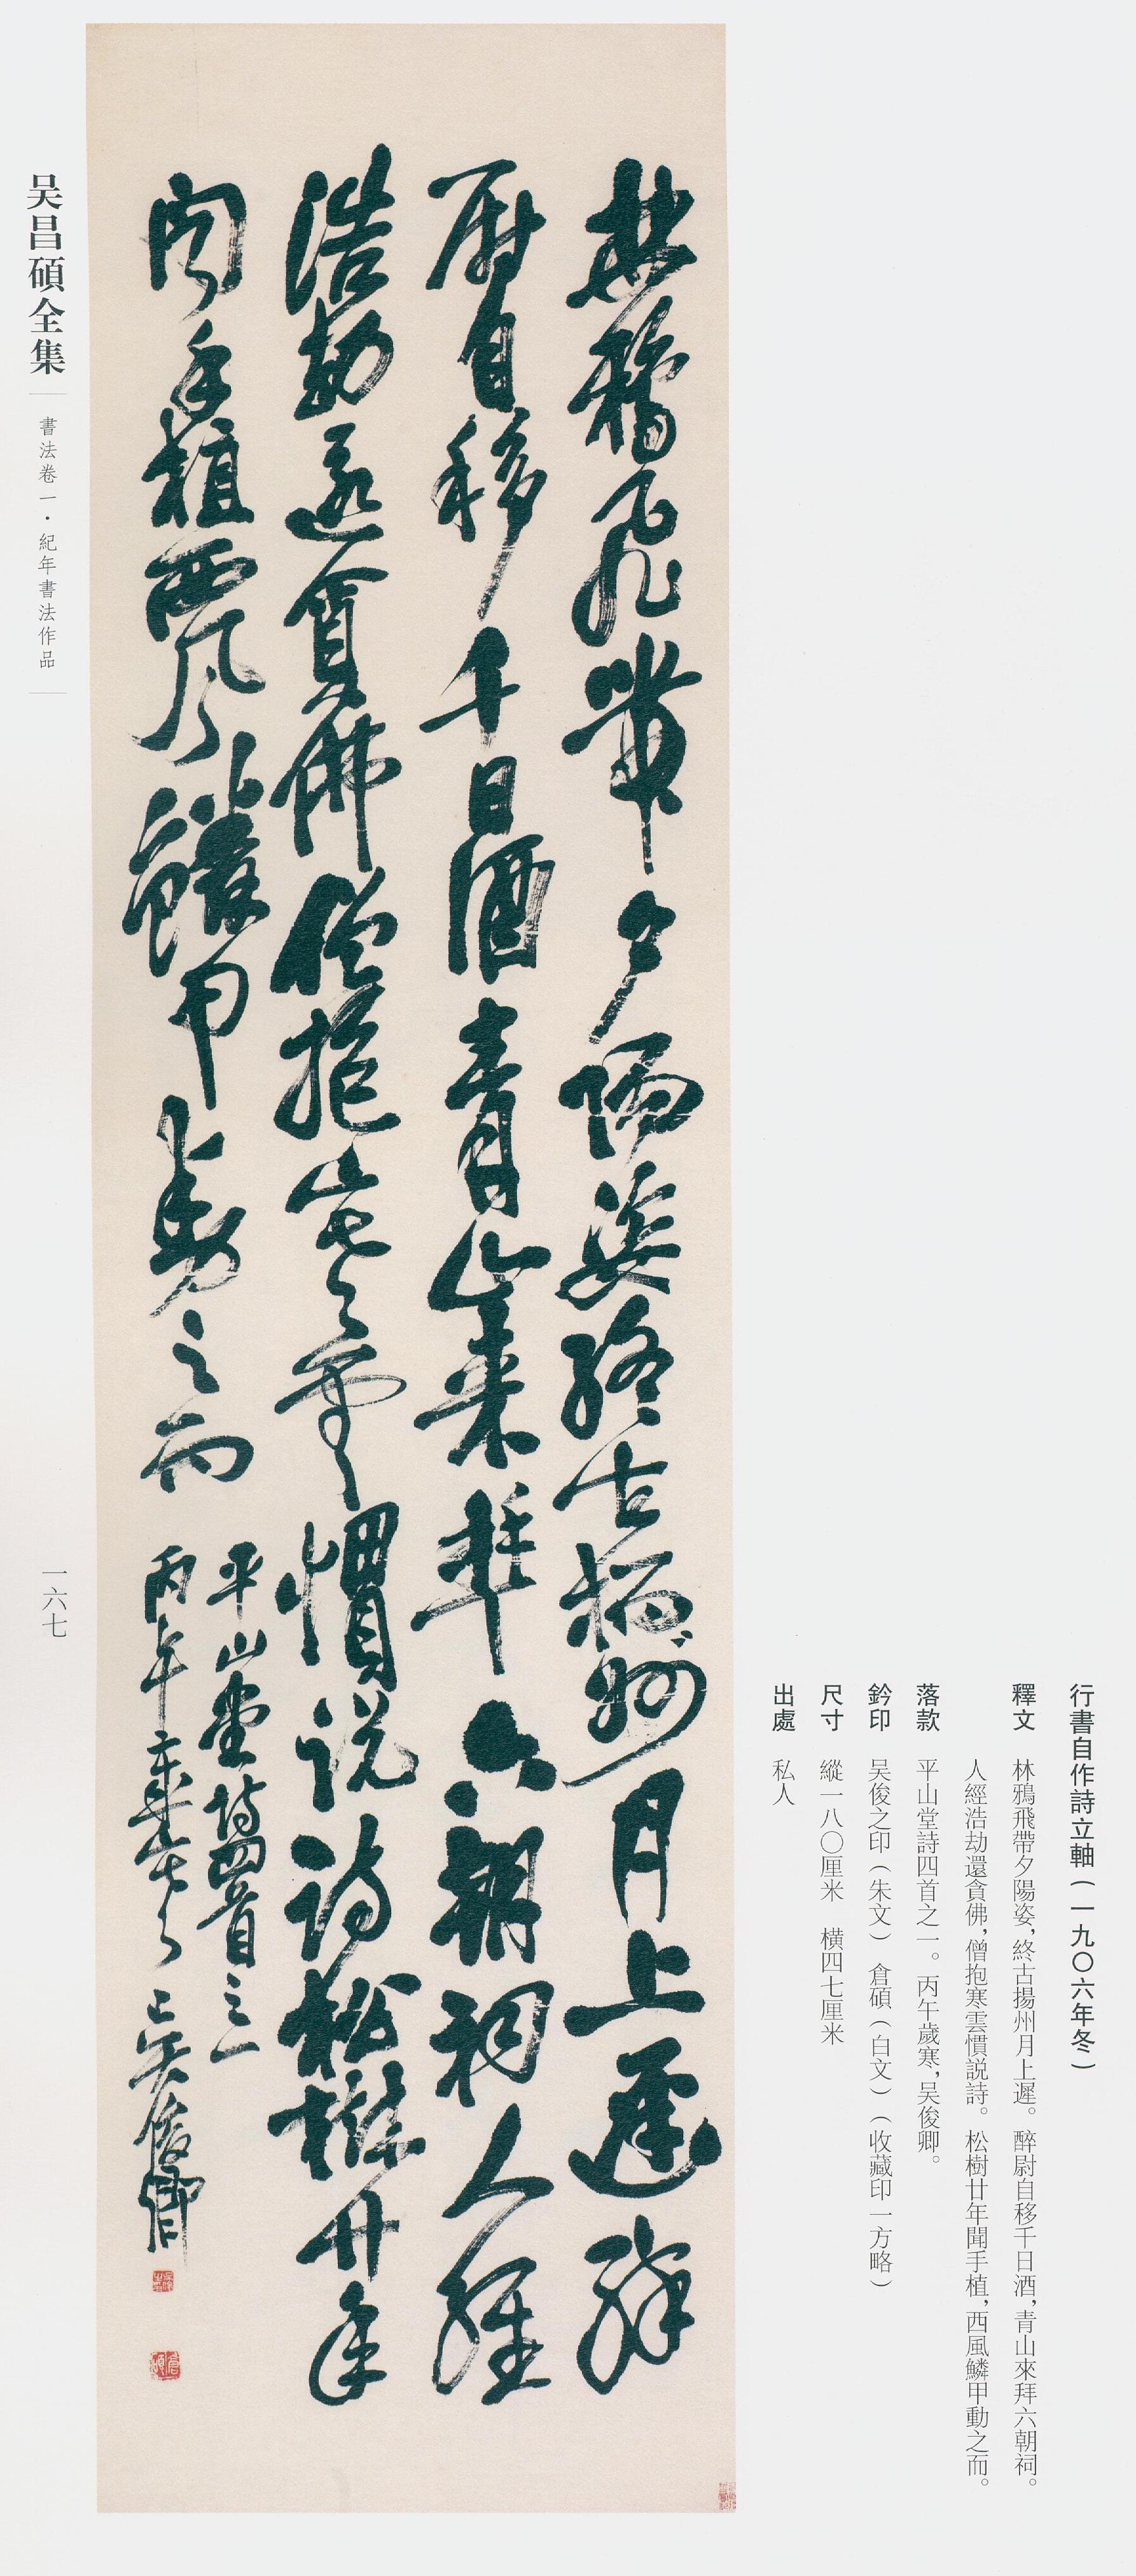 行書自作詩立軸（一九〇六年冬）
釋文　林鴉飛帶夕陽姿，終古揚州月上遲。醉尉自移千日酒，青山來拜六朝祠。
人經浩劫還貪佛，僧抱寒雲慣説詩。松樹廿年聞手植，西風鱗甲動之而。
落款　平山堂詩四首之一。丙午歲寒，吴俊卿。
鈐印　吴俊之印（朱文）　倉碩（白文）（收藏印一方略）
尺寸　縱一八〇厘米　橫四七厘米
出處　私人
林鴉飛帶夕陽姿終古揚州月上遲醉
尉自移千日酒青山來拜六朝祠人經
浩劫還貪佛僧抱寒雲慣説詩松樹廿年
聞手植西風鱗甲動之而
平山堂詩四首之一
丙午歲寒吴俊卿
吴俊之印
倉碩
吴昌碩全集
書法卷一·紀年書法作品
一六七